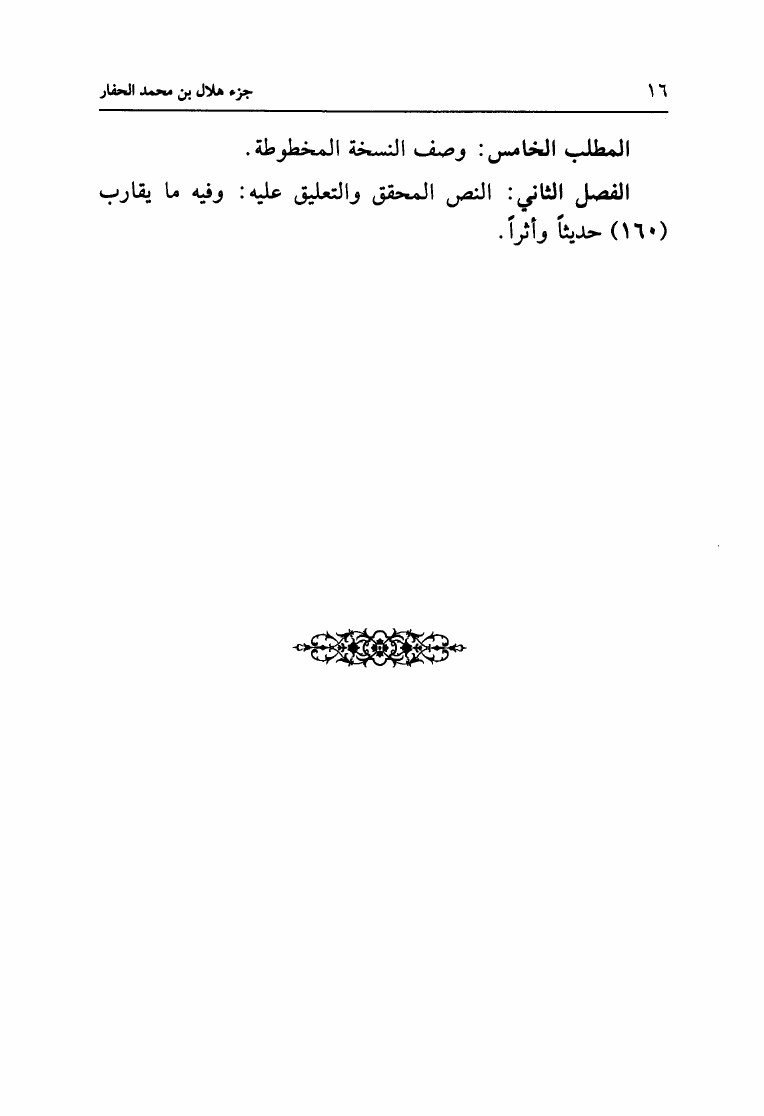 ١٦ جزء هلال بن محمد الحفار
المطلب الخامس: وصف النسخة المخطوطة.
الفصل الثاني: النص المحقق والتعليق عليه: وفيه ما يقارب
(١٦٠) حديثاً وأثراً.